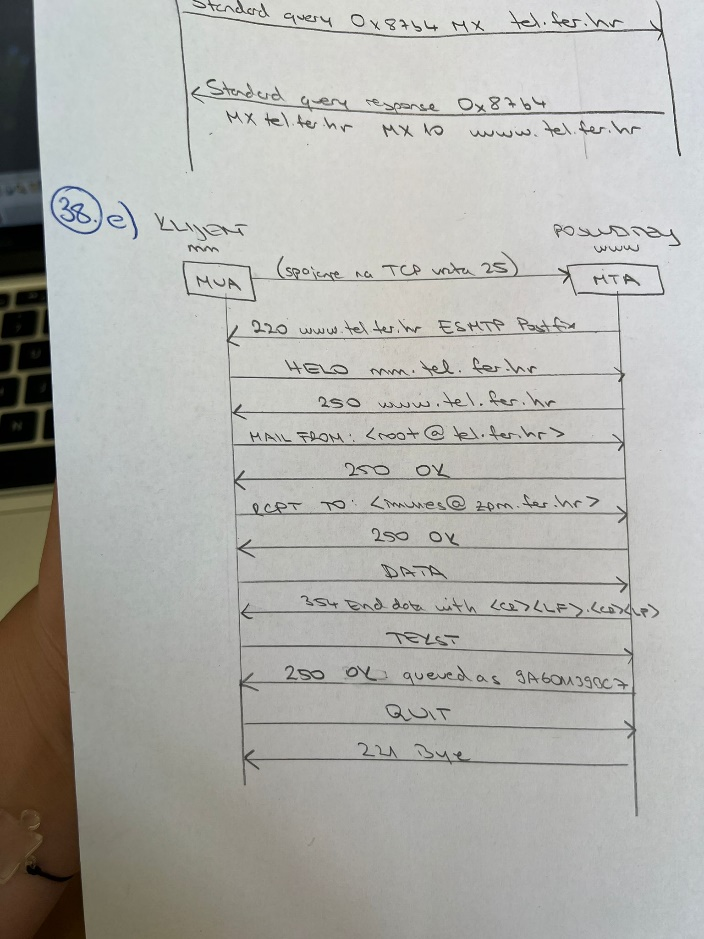 Standard query 0x87b4 MX tel.fer.hr
Standard query response 0x87b4
MX tel.fer.hr MX 10 www.tel.fer.hr
38. e) KLIJENT
mm
POSLUŽITELJ
www
MUA
(spajanje na TCP vrata 25)
MTA
220 www.tel.fer.hr ESMTP Postfix
HELO mm.tel.fer.hr
250 www.tel.fer.hr
MAIL FROM: <root@tel.fer.hr>
250 OK
RCPT TO: <imunes@zpm.fer.hr>
250 OK
DATA
354 End data with <CR><LF>.<CR><LF>
TEKST
250 OK: queued as
QUIT
221 Bye